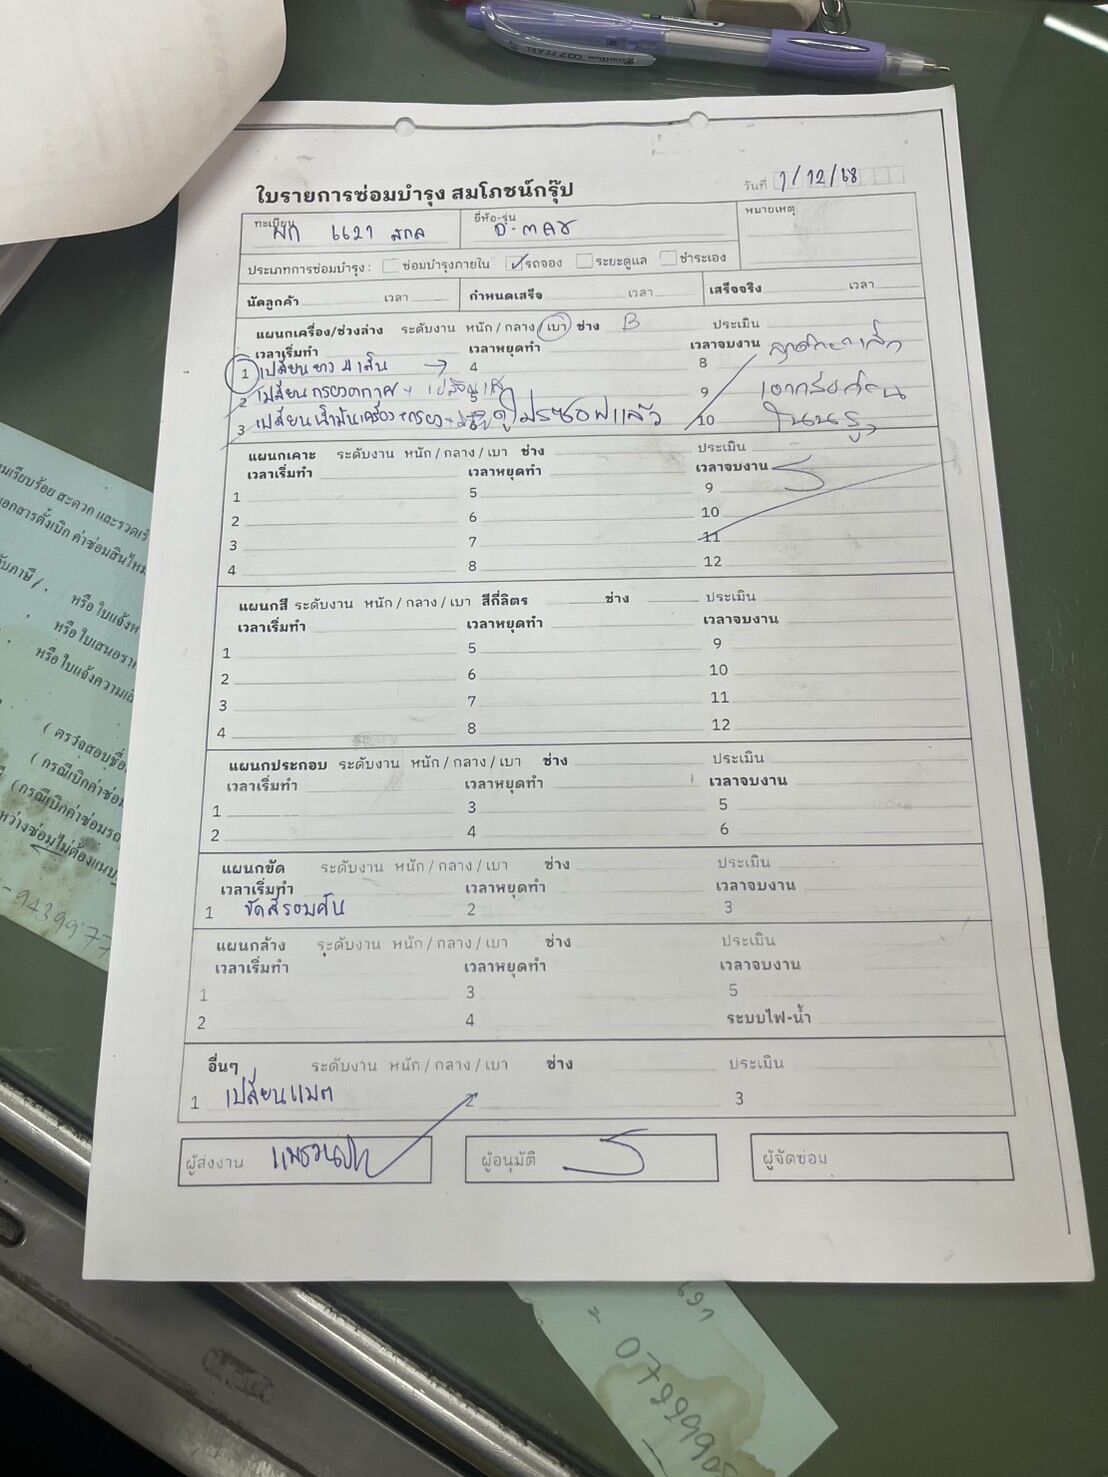 ใบรายการซ่อมบำรุง สมโภชน์กรุ๊ป
วันที่ 1/12/68
ทะเบียน ผก 6621 สกล
ยี่ห้อ-รุ่น D-max
หมายเหตุ
ประเภทการซ่อมบำรุง : ซ่อมบำรุงภายใน รถจอง ระยะดูแล ชำระเอง
นัดลูกค้า เวลา กำหนดเสร็จ เวลา เสร็จจริง เวลา
แผนกเครื่อง/ช่วงล่าง ระดับงาน หนัก / กลาง / เบา ช่าง B ประเมิน
เวลาเริ่มทำ เวลาหยุดทำ เวลาจบงาน
1 เปลี่ยนยาง 4 เส้น 4 8
2 เปลี่ยนกรองอากาศ 9
3 เปลี่ยนน้ำมันเครื่อง+กรอง ดูโปรซอฟแล้ว 10
แผนกเคาะ ระดับงาน หนัก / กลาง / เบา ช่าง ประเมิน
เวลาเริ่มทำ เวลาหยุดทำ เวลาจบงาน
1 5 9
2 6 10
3 7 11
4 8 12
แผนกสี ระดับงาน หนัก / กลาง / เบา สีกี่ลิตร ช่าง ประเมิน
เวลาเริ่มทำ เวลาหยุดทำ เวลาจบงาน
1 5 9
2 6 10
3 7 11
4 8 12
แผนกประกอบ ระดับงาน หนัก / กลาง / เบา ช่าง ประเมิน
เวลาเริ่มทำ เวลาหยุดทำ เวลาจบงาน
1 3 5
2 4 6
แผนกขัด ระดับงาน หนัก / กลาง / เบา ช่าง ประเมิน
เวลาเริ่มทำ เวลาหยุดทำ เวลาจบงาน
1 ขัดสีรอบคัน 2 3
แผนกล้าง ระดับงาน หนัก / กลาง / เบา ช่าง ประเมิน
เวลาเริ่มทำ เวลาหยุดทำ เวลาจบงาน
1 3 5
2 4 ระบบไฟ-น้ำ
อื่นๆ ระดับงาน หนัก / กลาง / เบา ช่าง ประเมิน
1 เปลี่ยนแบต 2 3
ผู้ส่งงาน
ผู้อนุมัติ
ผู้จัดซ่อม